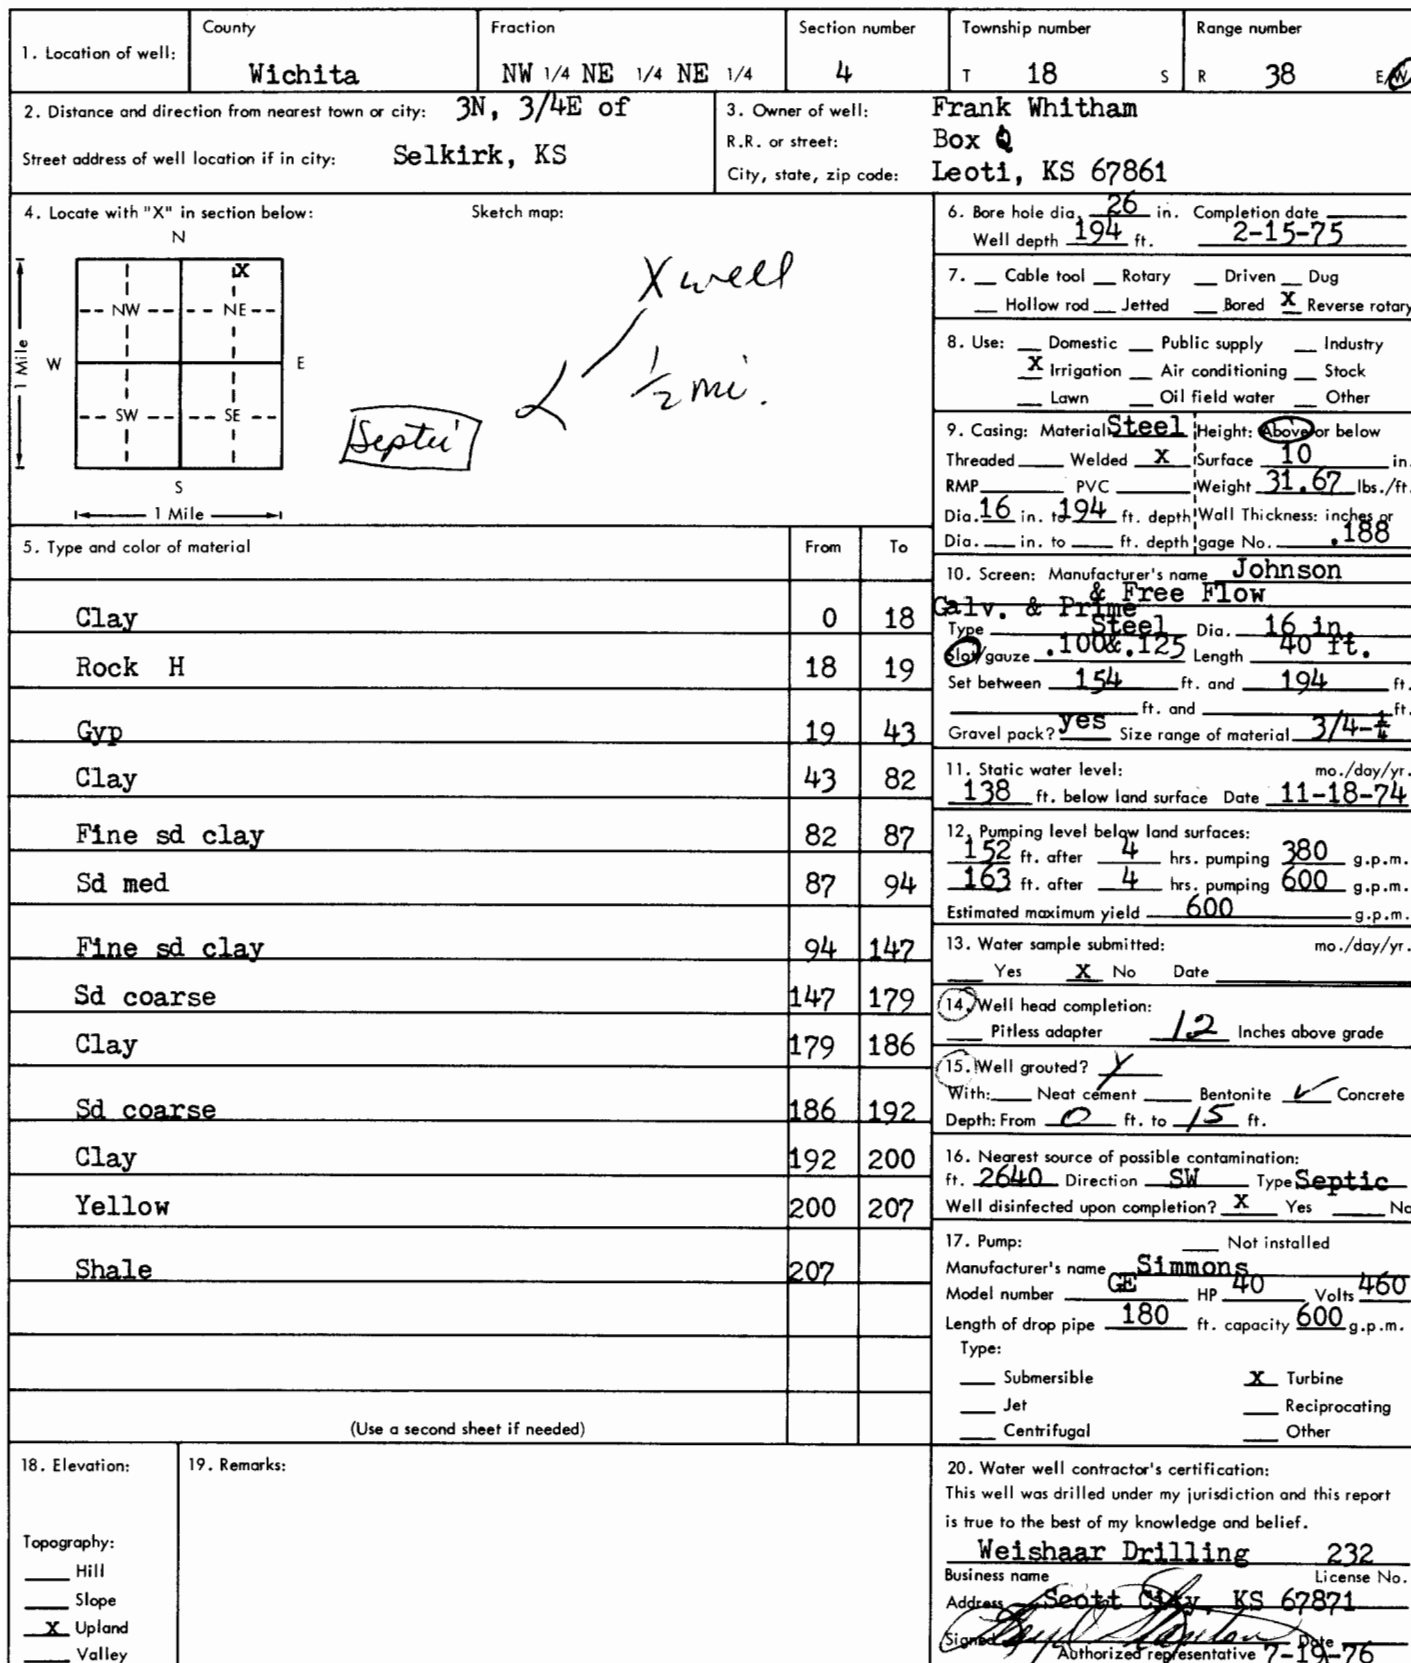 1. Location of well: County Wichita Fraction NW 1/4 NE 1/4 NE 1/4 Section number 4 Township number T 18 S Range number R 38 E/W
2. Distance and direction from nearest town or city: 3N, 3/4E of
Street address of well location if in city: Selkirk, KS
3. Owner of well: Frank Whitham
R.R. or street: Box Q
City, state, zip code: Leoti, KS 67861
4. Locate with "X" in section below: Sketch map:
N
X
NW NE
W E
1 Mile
SW SE
S
1 Mile
X well
1/2 mi.
Septic
5. Type and color of material From To
Clay 0 18
Rock H 18 19
Gyp 19 43
Clay 43 82
Fine sd clay 82 87
Sd med 87 94
Fine sd clay 94 147
Sd coarse 147 179
Clay 179 186
Sd coarse 186 192
Clay 192 200
Yellow 200 207
Shale 207
(Use a second sheet if needed)
6. Bore hole dia. 26 in. Completion date
Well depth 194 ft. 2-15-75
7. Cable tool Rotary Driven Dug
Hollow rod Jetted Bored X Reverse rotary
8. Use: Domestic Public supply Industry
X Irrigation Air conditioning Stock
Lawn Oil field water Other
9. Casing: Material Steel Height: Above or below
Threaded Welded X Surface 10 in.
RMP PVC Weight 31.67 lbs./ft.
Dia. 16 in. to 194 ft. depth Wall Thickness: inches or
Dia. in. to ft. depth gage No. .188
10. Screen: Manufacturer's name Johnson
& Free Flow
Galv. & Prime
Type Steel Dia. 16 in.
Slot/gauze .100&.125 Length 40 ft.
Set between 154 ft. and 194 ft.
ft. and ft.
Gravel pack? yes Size range of material 3/4-1/4
11. Static water level: mo./day/yr.
138 ft. below land surface Date 11-18-74
12. Pumping level below land surfaces:
152 ft. after 4 hrs. pumping 380 g.p.m.
163 ft. after 4 hrs. pumping 600 g.p.m.
Estimated maximum yield 600 g.p.m.
13. Water sample submitted: mo./day/yr.
Yes X No Date
14. Well head completion:
Pitless adapter 12 Inches above grade
15. Well grouted? Y
With: Neat cement Bentonite ✓ Concrete
Depth: From 0 ft. to 15 ft.
16. Nearest source of possible contamination:
ft. 2640 Direction SW Type Septic
Well disinfected upon completion? X Yes No
17. Pump: Not installed
Manufacturer's name Simmons
Model number GE HP 40 Volts 460
Length of drop pipe 180 ft. capacity 600 g.p.m.
Type:
Submersible X Turbine
Jet Reciprocating
Centrifugal Other
18. Elevation:
Topography:
Hill
Slope
X Upland
Valley
19. Remarks:
20. Water well contractor's certification:
This well was drilled under my jurisdiction and this report
is true to the best of my knowledge and belief.
Weishaar Drilling 232
Business name License No.
Address Scott City, KS 67871
Signed Date
Authorized representative 7-19-76